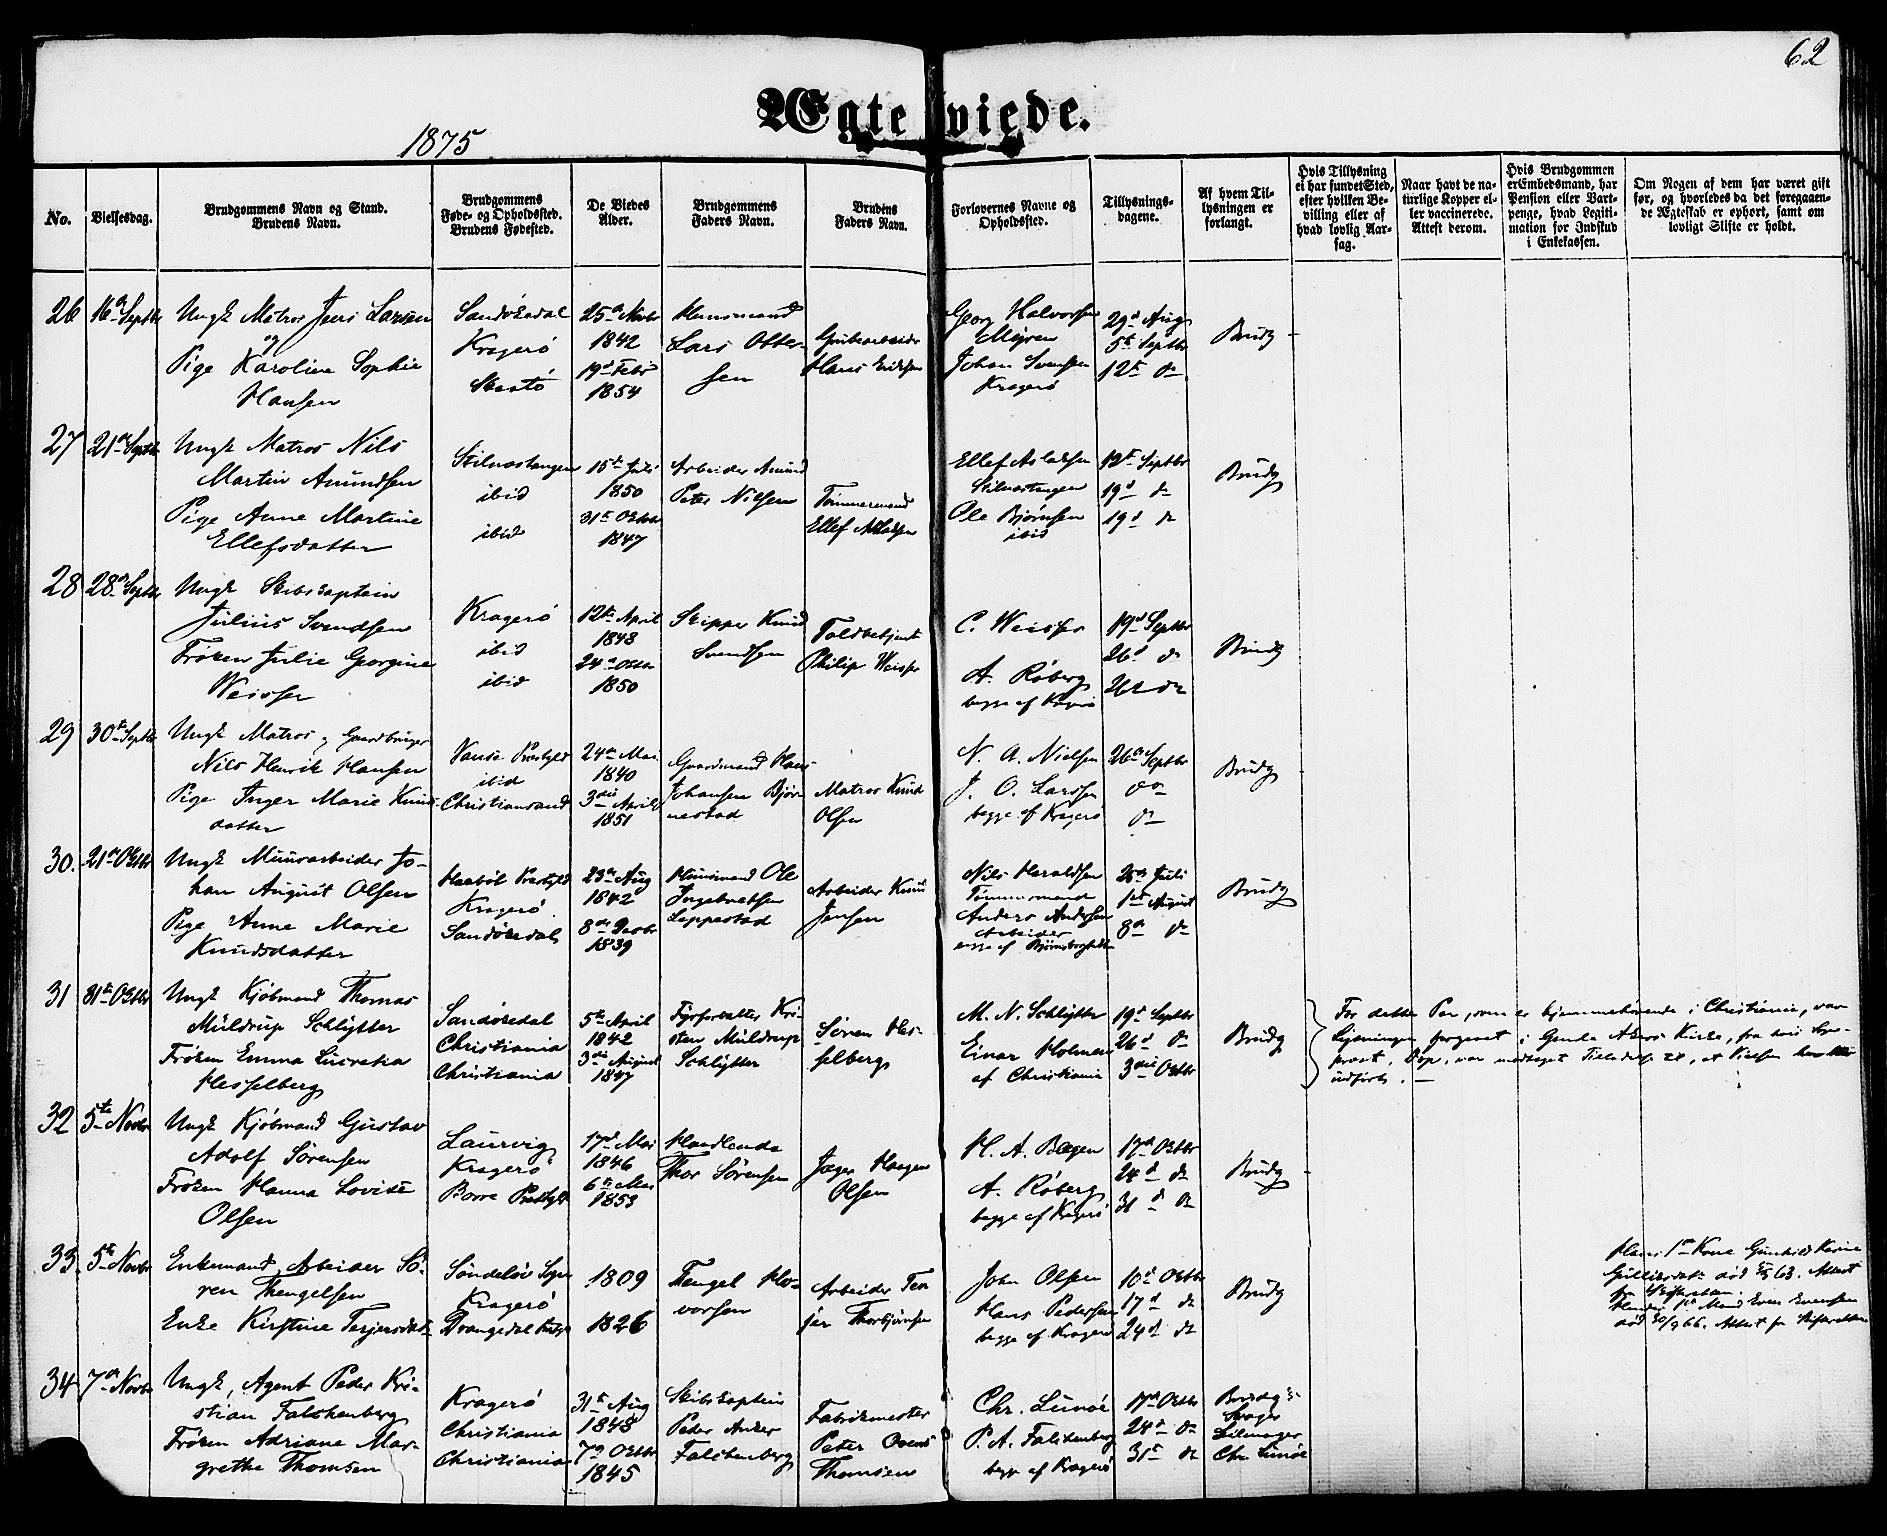 62
Ægteviede.
1875
No.
Vielsesdag.
Brudgommens Navn og Stand.
Brudens Navn.
Brudgommens
Føde- og Opholdssted.
Brudens Fødested.
De Viedes
Alder.
Brudgommens
Faders Navn.
Brudens
Faders Navn.
Forlovernes Navne og
Opholdssted.
Tillysnings-
dagene.
Af hvem Til-
lysningen er
forlangt.
Hvis Tillysning
ei har fundet Sted,
efter hvilken Be-
villing eller af
hvad lovlig Aar-
sag.
Naar havt de na-
türlige Kopper el-
ler vaccinerede.
Attest derom.
Hvis Brudgommen
er Embedsmand, har
Pension eller Vart-
penge, hvad Legiti-
mation for Indskud
i Enkekassen.
Om Nogen af dem har været gift
før, og hvorledes da det foregaaen-
de Ægteskab er ophørt, samt om
lovligt Skifte er holdt.
26
16de Septbr
Ungk Matros Jens Larsen
og
Pige Karoline Sophie
Hansen
Sandøkedal
Kragerø
Skaatø
25de Novbr
1842
19d Febr
1854
Huusmand
Lars Otter-
sen
Hans Eriksen
Georg Halvorsen
Myren
Johan Svensen
Kragerø
29d Aug
5te Septbr
12te do
Brudg
27
21de Septbr
Ungk Matros Nils
Martin Amundsen
Pige Anne Martine
Ellefsdatter
Stilnestangen
ibid
ibid
15de Juli
1850
31te Octbr
1847
Arbeider Amund
Peter Nilsen
Tømmermand
Ellef Aslaksen
Ellef Aslaksen
Stilnestangen
Ole Bjørnsen
ibid
12te Septbr
19d do
19d do
Brudg
28
28de Septbr
Ungk Skibscaptein
Julius Svendsen
Frøken Julie Georgine
Weisser
Kragerø
ibid
ibid
12te April
1848
24de Octbr
1850
Skipper Knud
Svendsen
Toldbetjent
Philip Weisser
C. Weisser
A. Røberg
begge af Kragerø
19d Septbr
26d do
26d do
Brudg
29
30te Septbr
Ungk Matros og Gaardbruger
Nils Henrik Hansen
Pige Inger Marie Knuds-
datter
Vanse Præstgjeld
ibid
Christiansand
24de Mai
1840
3die April
1851
Gaardmand Hans
Johansen Bjør-
nestad
Matros Knud
Olsen
N. A. Nielsen
J. O. Larsen
begge af Kragerø
26de Septbr
do
do
Brudg
30.
21de Octbr
Ungk Muurarbeider Jo-
han August Olsen
Pige Anne Marie
Knudsdatter
Haabøl Præstgjeld
Kragerø
Sandøkedal
23de Aug
1842
8de Decbr
1839
Huusmand Ole
Ingebretsen
Leppestad
Arbeider Knud
Jensen
Nils Haraldsen
Tømmermand
Anders Andersen
Arbeider
begge af Bjørnsborgholt
25de Juli
1ste August
8de do
Brudg
31
31te Octbr
Ungk Kjøbmand Thomas
Müldrup Schlytter
Frøken Emma Lucretia
Hesselberg
Sandøkedal
Christiania
Christiania
5te April
1842
3die August
1847
Fyrforvalter Kri-
sten Müldrup
Schlytter
Søren Hes-
selberg
M. N. Schlytter
Einar Holmen
af Christiania
19d Septbr
26d do
3die Octbr
Brudg
For dette Par, som er hjemmehørende i Christiania, var
Lysningen foregaaet i Gamle Akers Kirke, fra hvis Sogne-
præst, Dop, var modtaget Tilladelse til, at Vielsen her blev
udført. —
32
5te Novbr
Ungk Kjøbmand Gustav
Adolf Sørensen
Frøken Hanna Lovise
Olsen
Laurvig
Kragerø
Borre Præstgjeld
17d Mai
1846
6te Mai
1853
Handlende
Thor Sørensen
Jæger Haagen
Olsen
H. A. Bøgen
A. Røberg
begge af Kragerø
17d Octbr
24d do
31d do
Brudg
33.
5te Novbr
Enkemand Arbeider Sø-
ren Thengelsen
Enke Kirstine Terjersdat
Søndeløv Sogn
Kragerø
Drangedal Præstgj
1809
1826
Tengel Ha-
vorsen
Arbeider Ter-
jer Thorbjørnsen
John Olsen
Hans Pedersen
begge af Kragerø
10d Octbr
17d do
24d do
Brudg
Hans 1ste Kone Gunhild Karine
Gulliksdatr død 63. Attest
fra Skifteretten.
Hendes 1ste Mand Even Evensen
død 30/9 66. Attest fra Skifteretten
34
7de Novbr
Ungk, Agent Peder Kri-
stian Falckenberg
Frøken Adriane Mar-
grethe Thomsen
Kragerø
Christiania
Christiania
31te Aug
1848
7de Octbr
1845
Skibscaptein
Peter Anker
Falckenberg
Fabrikmester
Peter Ovens
Thomsen
Chr. Lunøe
P. A. Falckenberg
begge af Kragerø
17d Octbr
24d do
31te do
Brudg's
Svoger
Seilmager
Chr. Lunøe